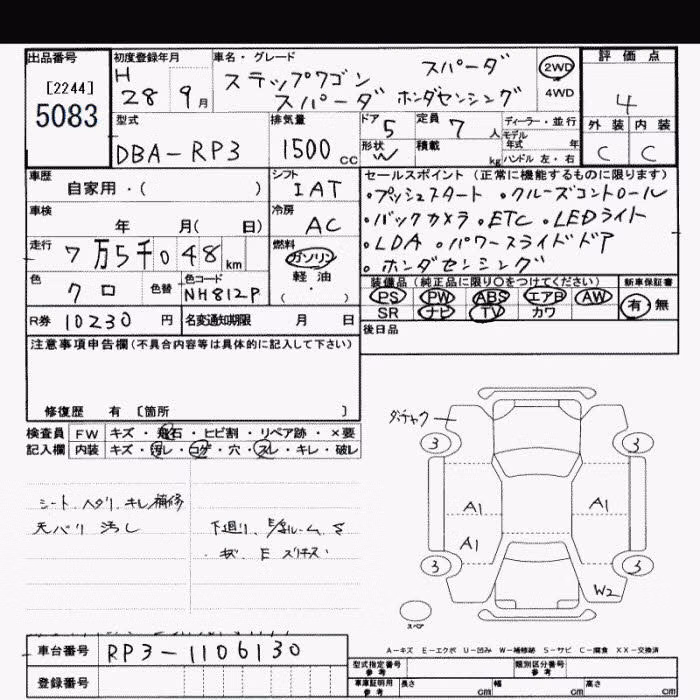 出品番号
[2244]
5083
初度登録年月
H
28 9月
車名・グレード
ステップワゴン スパーダ
スパーダ ホンダセンシング
2WD
4WD
評価点
4
外装 内装
C C
型式
DBA-RP3
排気量
1500 cc
ドア 5
形状 W
定員 7 人
積載 kg
ディーラー・並行
モデル
年式 年
ハンドル 左・右
車歴
自家用・( )
シフト
IAT
車検
年 月( 日)
冷房
AC
走行
7万5千048 km
燃料
ガソリン
軽油
( ・ )
色
クロ
色替
色コード
NH812P
R券 10230 円
名変通知期限 月 日
セールスポイント (正常に機能するものに限ります)
・プッシュスタート ・クルーズコントロール
・バックカメラ ・ETC ・LEDライト
・LDA ・パワースライドドア
・ホンダセンシング
装備品 (純正品に限り○をつけてください)
PS PW ABS エアB AW
SR ナビ TV カワ
新車保証書
有 無
後日品
注意事項申告欄(不具合内容等は具体的に記入して下さい)
修復歴 有 〔箇所 〕
検査員 FW キズ・飛石・ヒビ割・リペア跡・×要
記入欄 内装 キズ・汚レ・コゲ・穴・スレ・キレ・破レ
シート ヘタリ、キレ補修
天バリ 汚し
下廻り、
3 3
A1 A1
A1
3 3
W2
スペア
A-キズ E-エクボ U-凹み W-補修跡 S-サビ C-腐食 XX-交換済
車台番号 RP3-1106130
登録番号
型式指定番号 参考
類別区分番号 参考
車庫証明用 参考
長さ cm 幅 cm 高さ cm